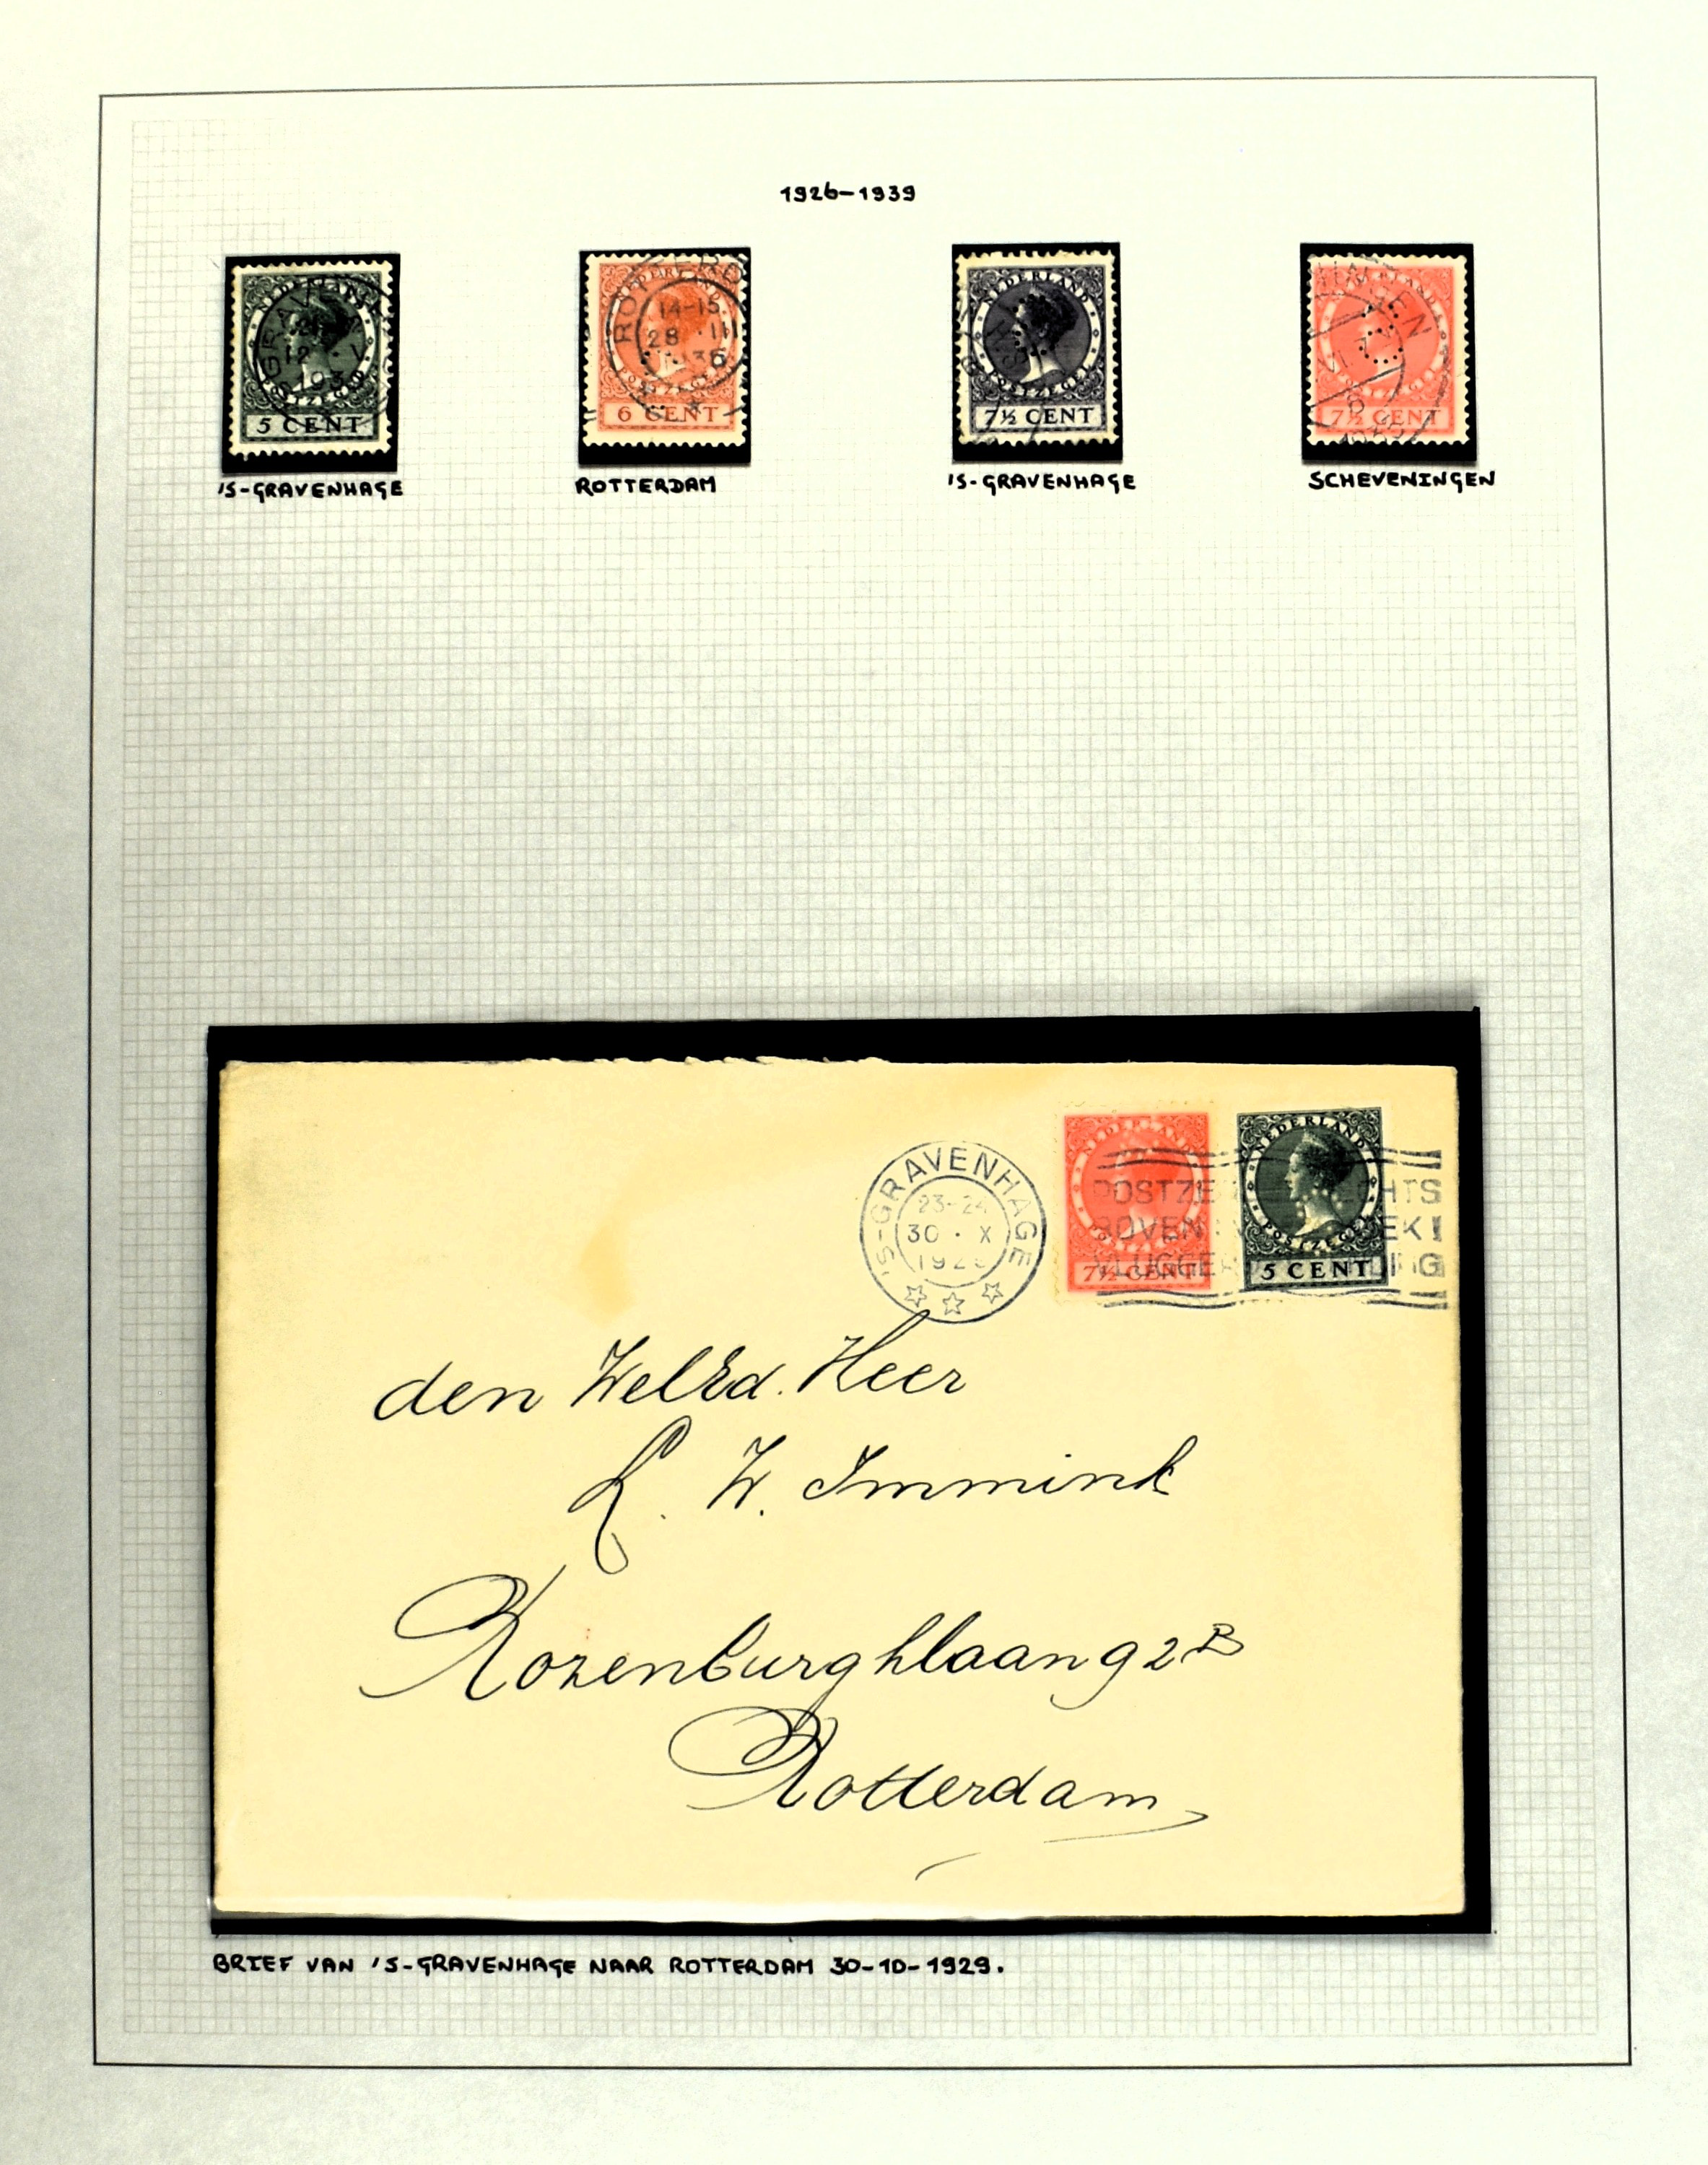 1926-1939
NEDERLAND
POSTZEGEL
5 CENT
ROTTERD
14-15
28 · III
6 CENT
NEDERLAND
POSTZEGEL
7½ CENT
NEDERLAND
POSTZEGEL
7½ CENT
'S-GRAVENHAGE
ROTTERDAM
'S-GRAVENHAGE
SCHEVENINGEN
'S-GRAVENHAGE
23-24
30 · X
NEDERLAND
7½ CENT
NEDERLAND
POSTZEGEL
5 CENT
den WelEd. Heer
L. W. Immink
Rozenburghlaan 92 B
Rotterdam
BRIEF VAN 'S-GRAVENHAGE NAAR ROTTERDAM 30-10-1929.